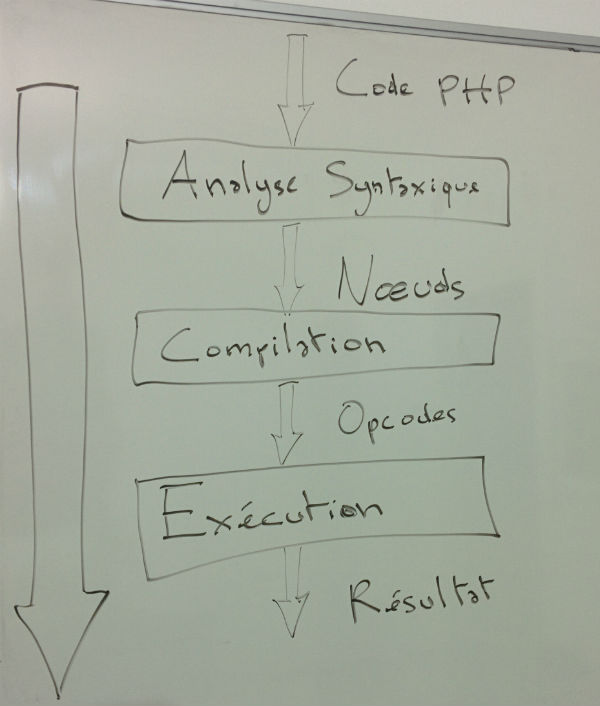 Code PHP
Analyse Syntaxique
Nœuds
Compilation
Opcodes
Exécution
Résultat